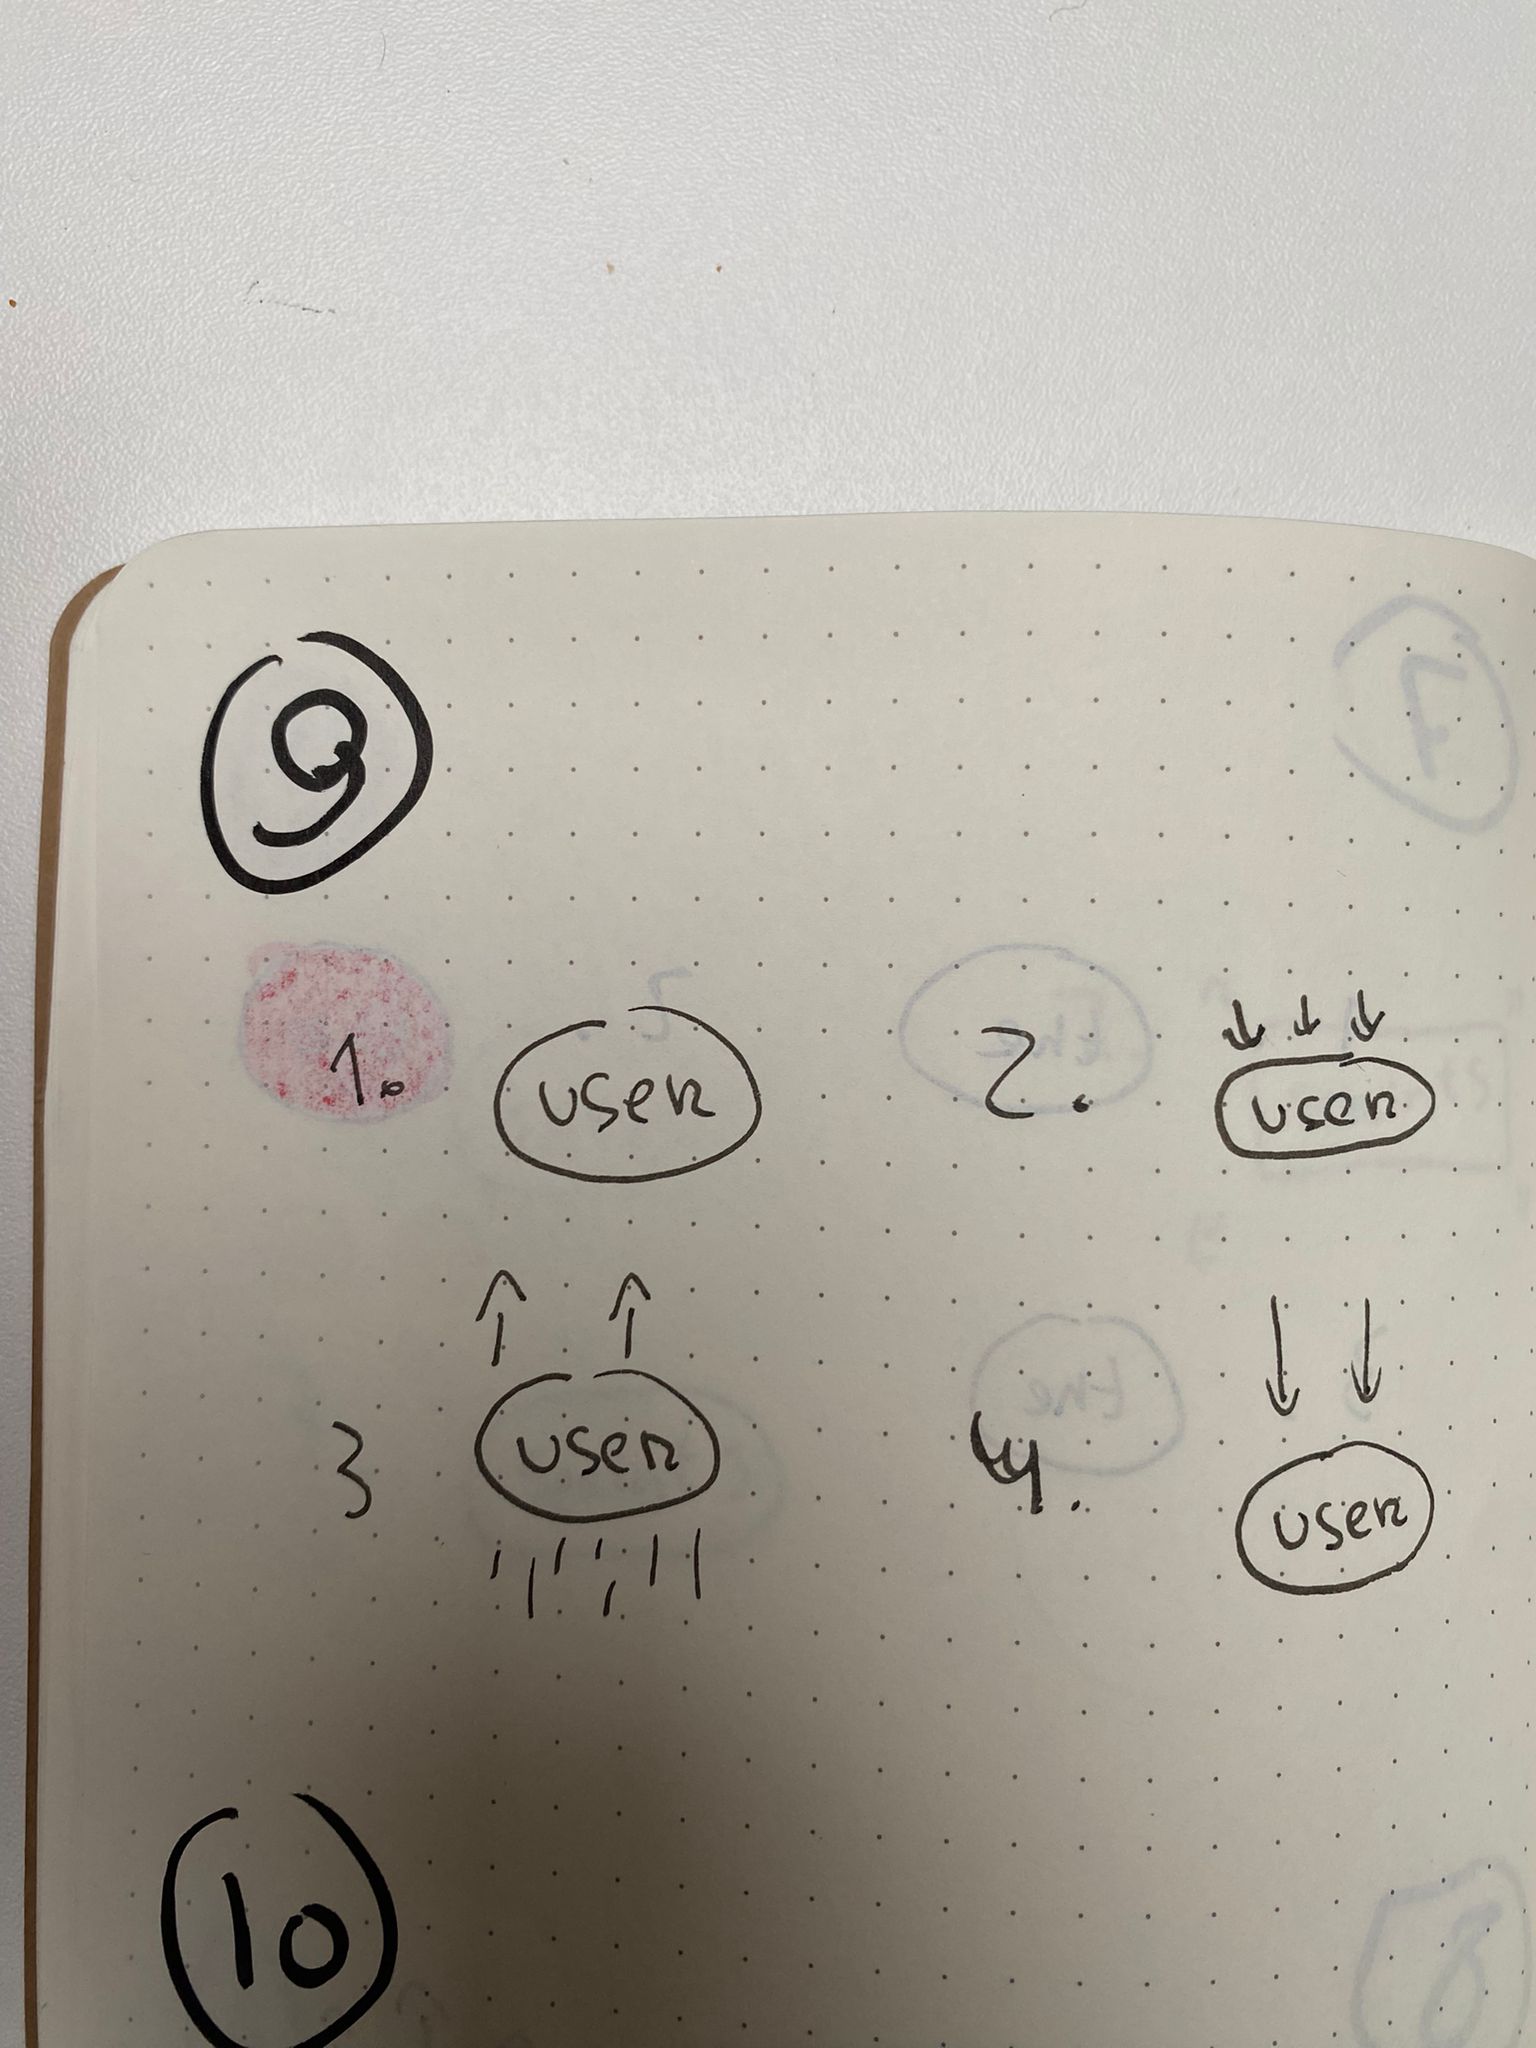 9
1. user 2. user
3 user 4. user
10